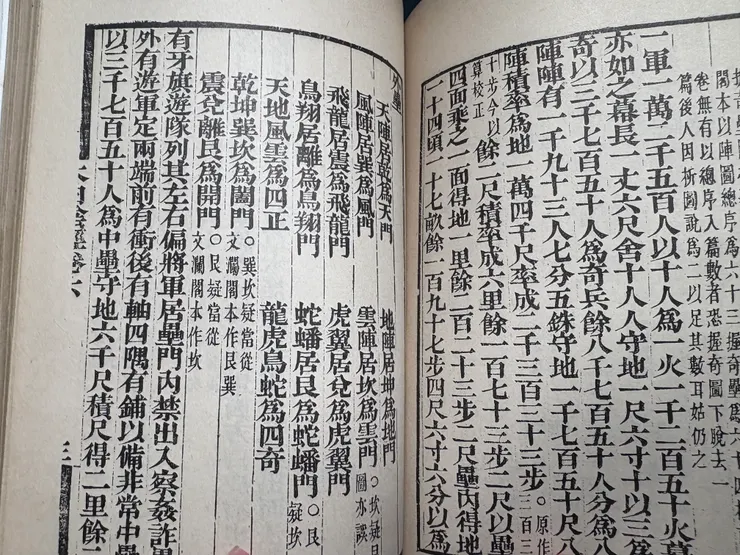 閣本以陣圖總序爲六十三握奇壘爲六十四
卷無有以總序入篇數者恐握奇圖下脫去一
篇後人因析圖說爲二以足其數耳姑仍之
一軍一萬二千五百人以十人爲一火一千二百五十火幕
亦如之幕長一丈六尺舍十人人守地一尺六寸十以三爲
奇以三千七百五十人爲奇兵餘八千七百五十人分爲八
陣陣有一千九十三人七分五銖守地一千七百五十尺八
陣積率爲地一萬四千尺率成二千三百二十三步○原作三百三
十步今以算校正餘二尺積率成六里餘一百七十三步二尺以壘
四面乘之一面得地一里餘二百二十三步二尺壘內得地
一十四頃一十七畝餘一百九十七步四尺六寸六分以爲
外壘
天陣居乾爲天門 地陣居坤爲地門
風陣居巽爲風門 雲陣居坎爲雲門○坎疑圖亦誤
飛龍居震爲飛龍門 虎翼居兌爲虎翼門
鳥翔居離爲鳥翔門 蛇蟠居艮爲蛇蟠門○艮疑坎
天地風雲爲四正 龍虎鳥蛇爲四奇
乾坤巽坎爲闔門○巽坎疑當從文瀾閣本作艮巽
震兌離艮爲開門○艮疑當從文瀾閣本作坎
有牙旗遊隊列其左右偏將軍居壘門內禁出入察姦詐壘
外有遊軍定兩端前有衝後有軸四隅有鋪以備非常中壘
以三千七百五十人爲中壘守地六千尺積尺得二里餘二
太白陰經卷六 三